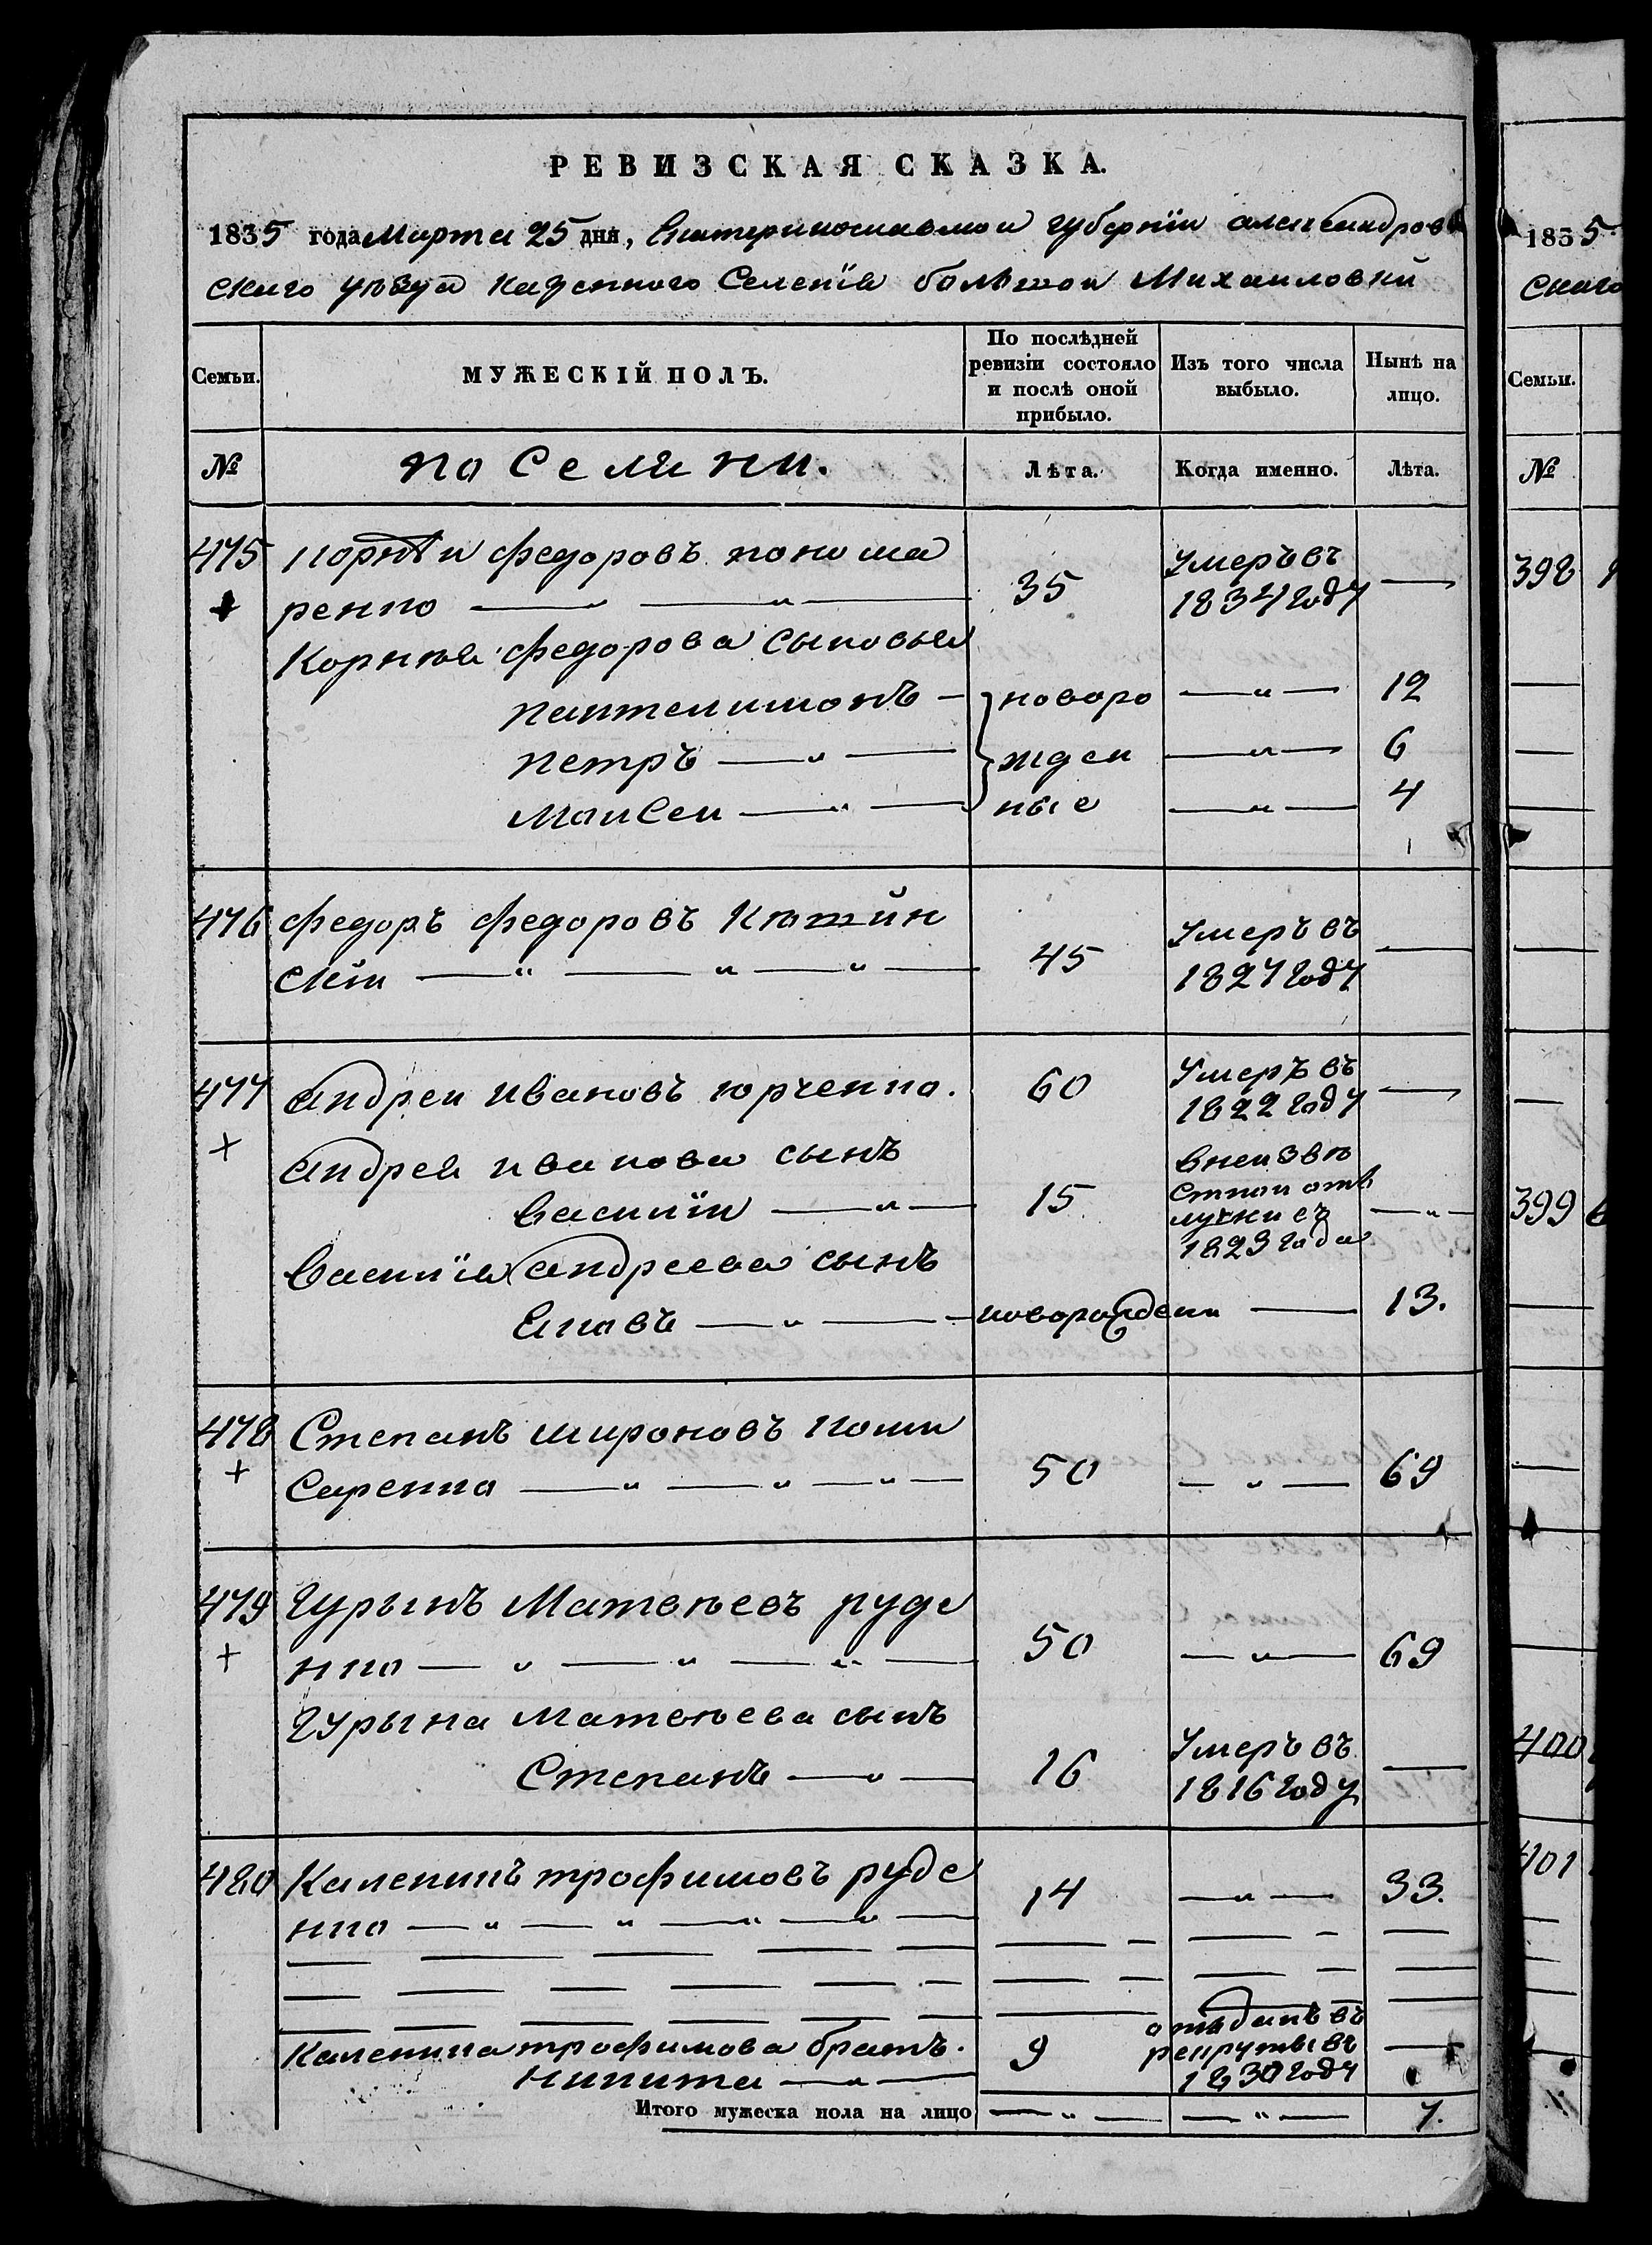 РЕВИЗСКАЯ СКАЗКА.
1835 года Марта 25 дня, Екатеринославской губернїи александров
скаго уѣзда казенного Селенїя большой Михайловки
Семьи.
МУЖЕСКІЙ ПОЛЪ.
По послѣдней ревизіи состояло и послѣ оной прибыло.
Изъ того числа выбыло.
Нынѣ на лицо.
№
поселяни.
Лѣта.
Когда именно.
Лѣта.
475 Корнѣй федоровъ понома
ренко — — " — 35 Умеръ въ 1834 году —
Корнѣя федорова сыновья
пантелимонъ — новоро — " — 12
петръ — " — жден — " — 6
Моисей — " — ные — " — 4
476 федоръ федоровъ
скїй — " — " — " — 45 Умеръ въ 1827 году —
477 андрей ивановъ юрченко. 60 Умеръ въ 1822 году —
андрея иванова сынъ
василїй — " — 15 в неизвѣ стной отлучки съ 1823 года — " —
василїя андреева сынъ
Яковъ — " — новорожден — 13.
478 Степанъ мироновъ коши
саренко — " — " — " — 50 — " — 69
479 Гурынъ Матвѣевъ руде
нко — " — " — " — 50 — " — 69
Гурына матвѣева сынъ
Степанъ — " — 16 Умеръ въ 1816 году —
480 Каленикъ трофимовъ руде
нко — " — " — " — " — 14 — " — 33.
Каленика трофимова братъ.
никита — " — 9 отъданъ въ рекруты въ 1830 году —
Итого мужеска пола на лицо — " — — " — 7.
1835
скаго
Семьи.
№
398
399
400
401